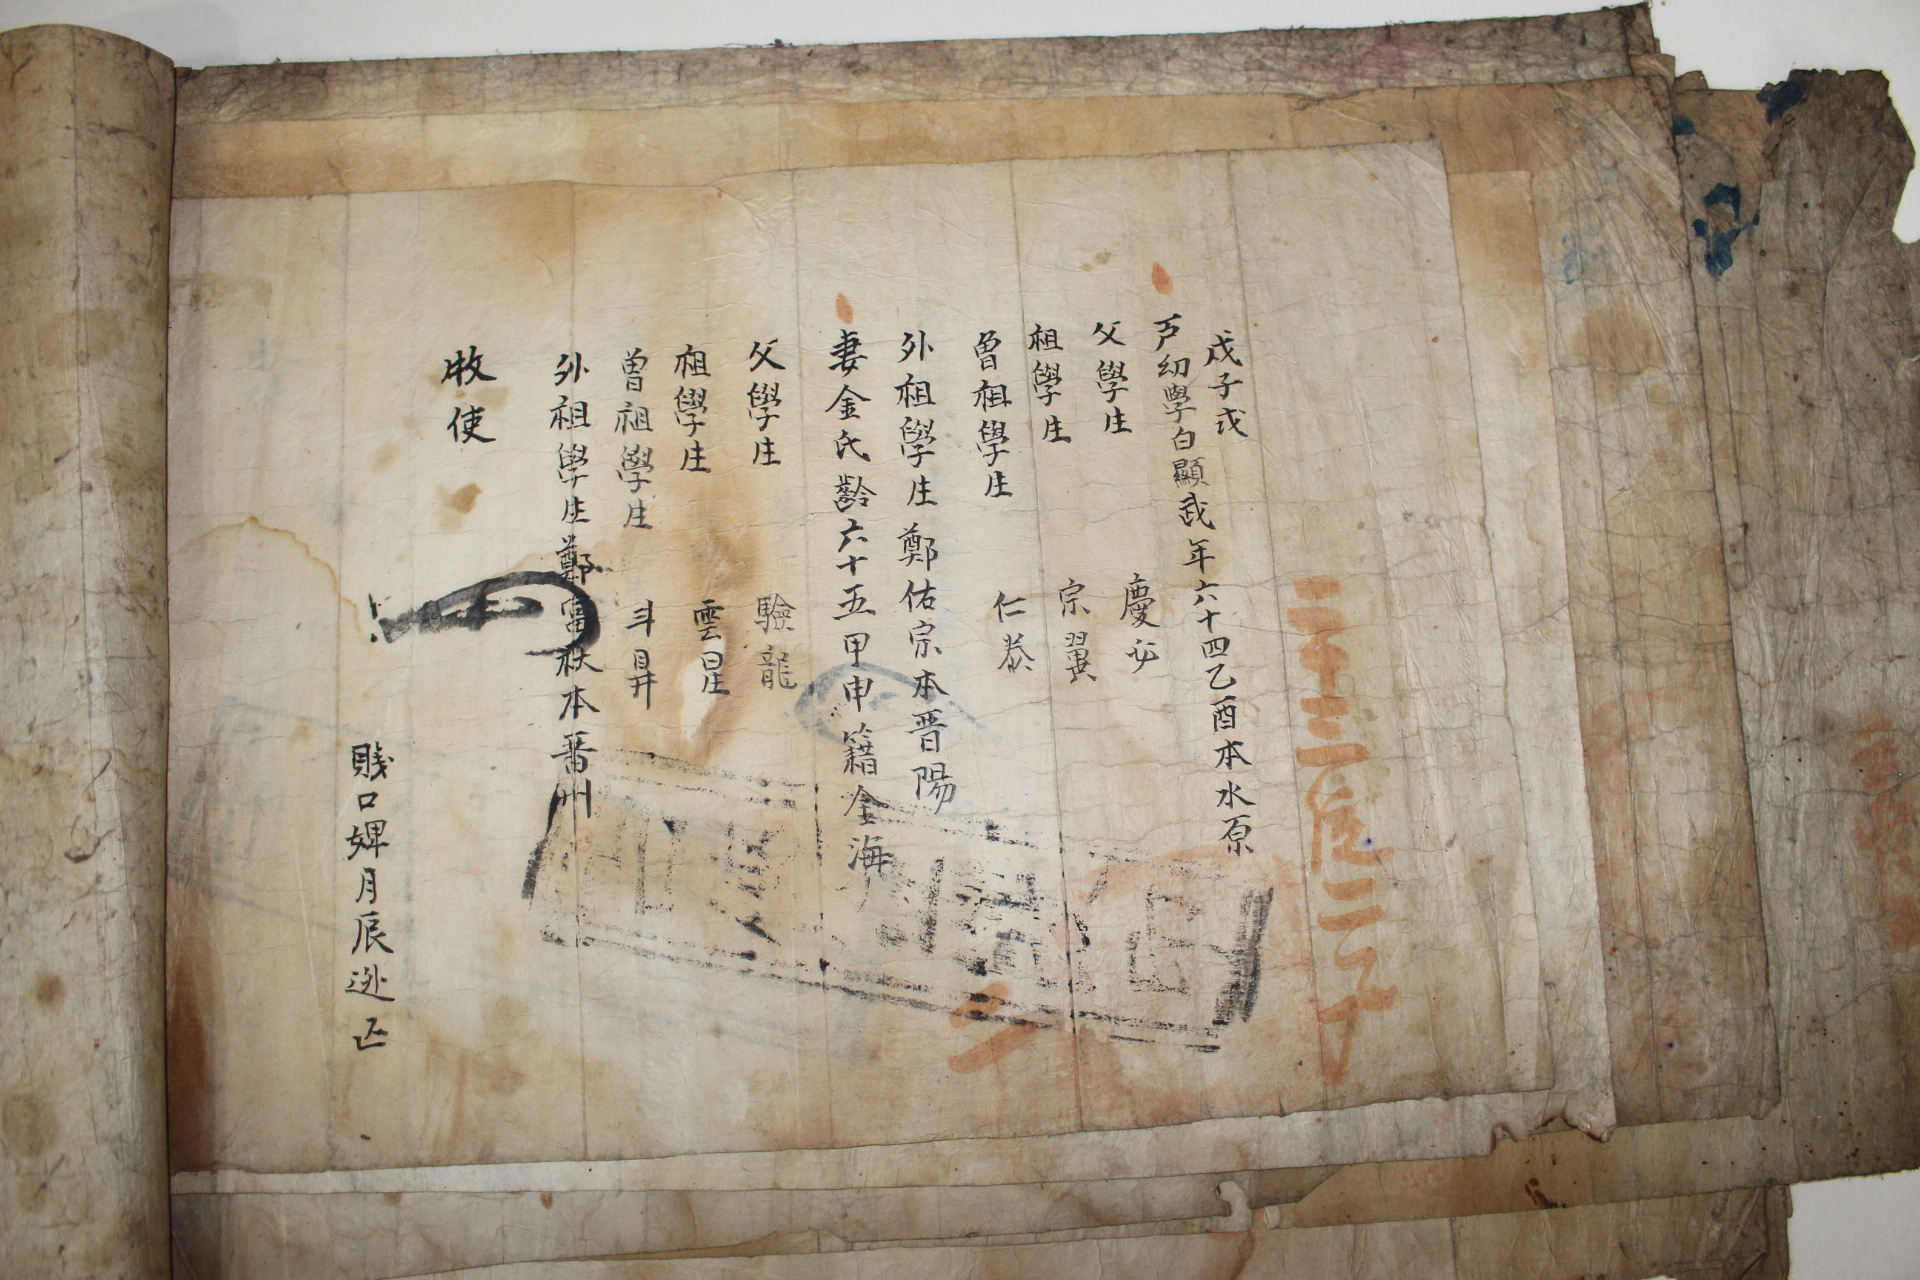 戊子式
戶幼學白顯武年六十四乙酉本水原
父學生 慶必
祖學生 宗翼
曾祖學生 仁恭
外祖學生鄭佑宗本晋陽
妻金氏齡六十五甲申籍金海
父學生 驗龍
祖學生 雲星
曾祖學生 斗昇
外祖學生鄭富秋本晋州
牧使
賤口婢月辰逃亡